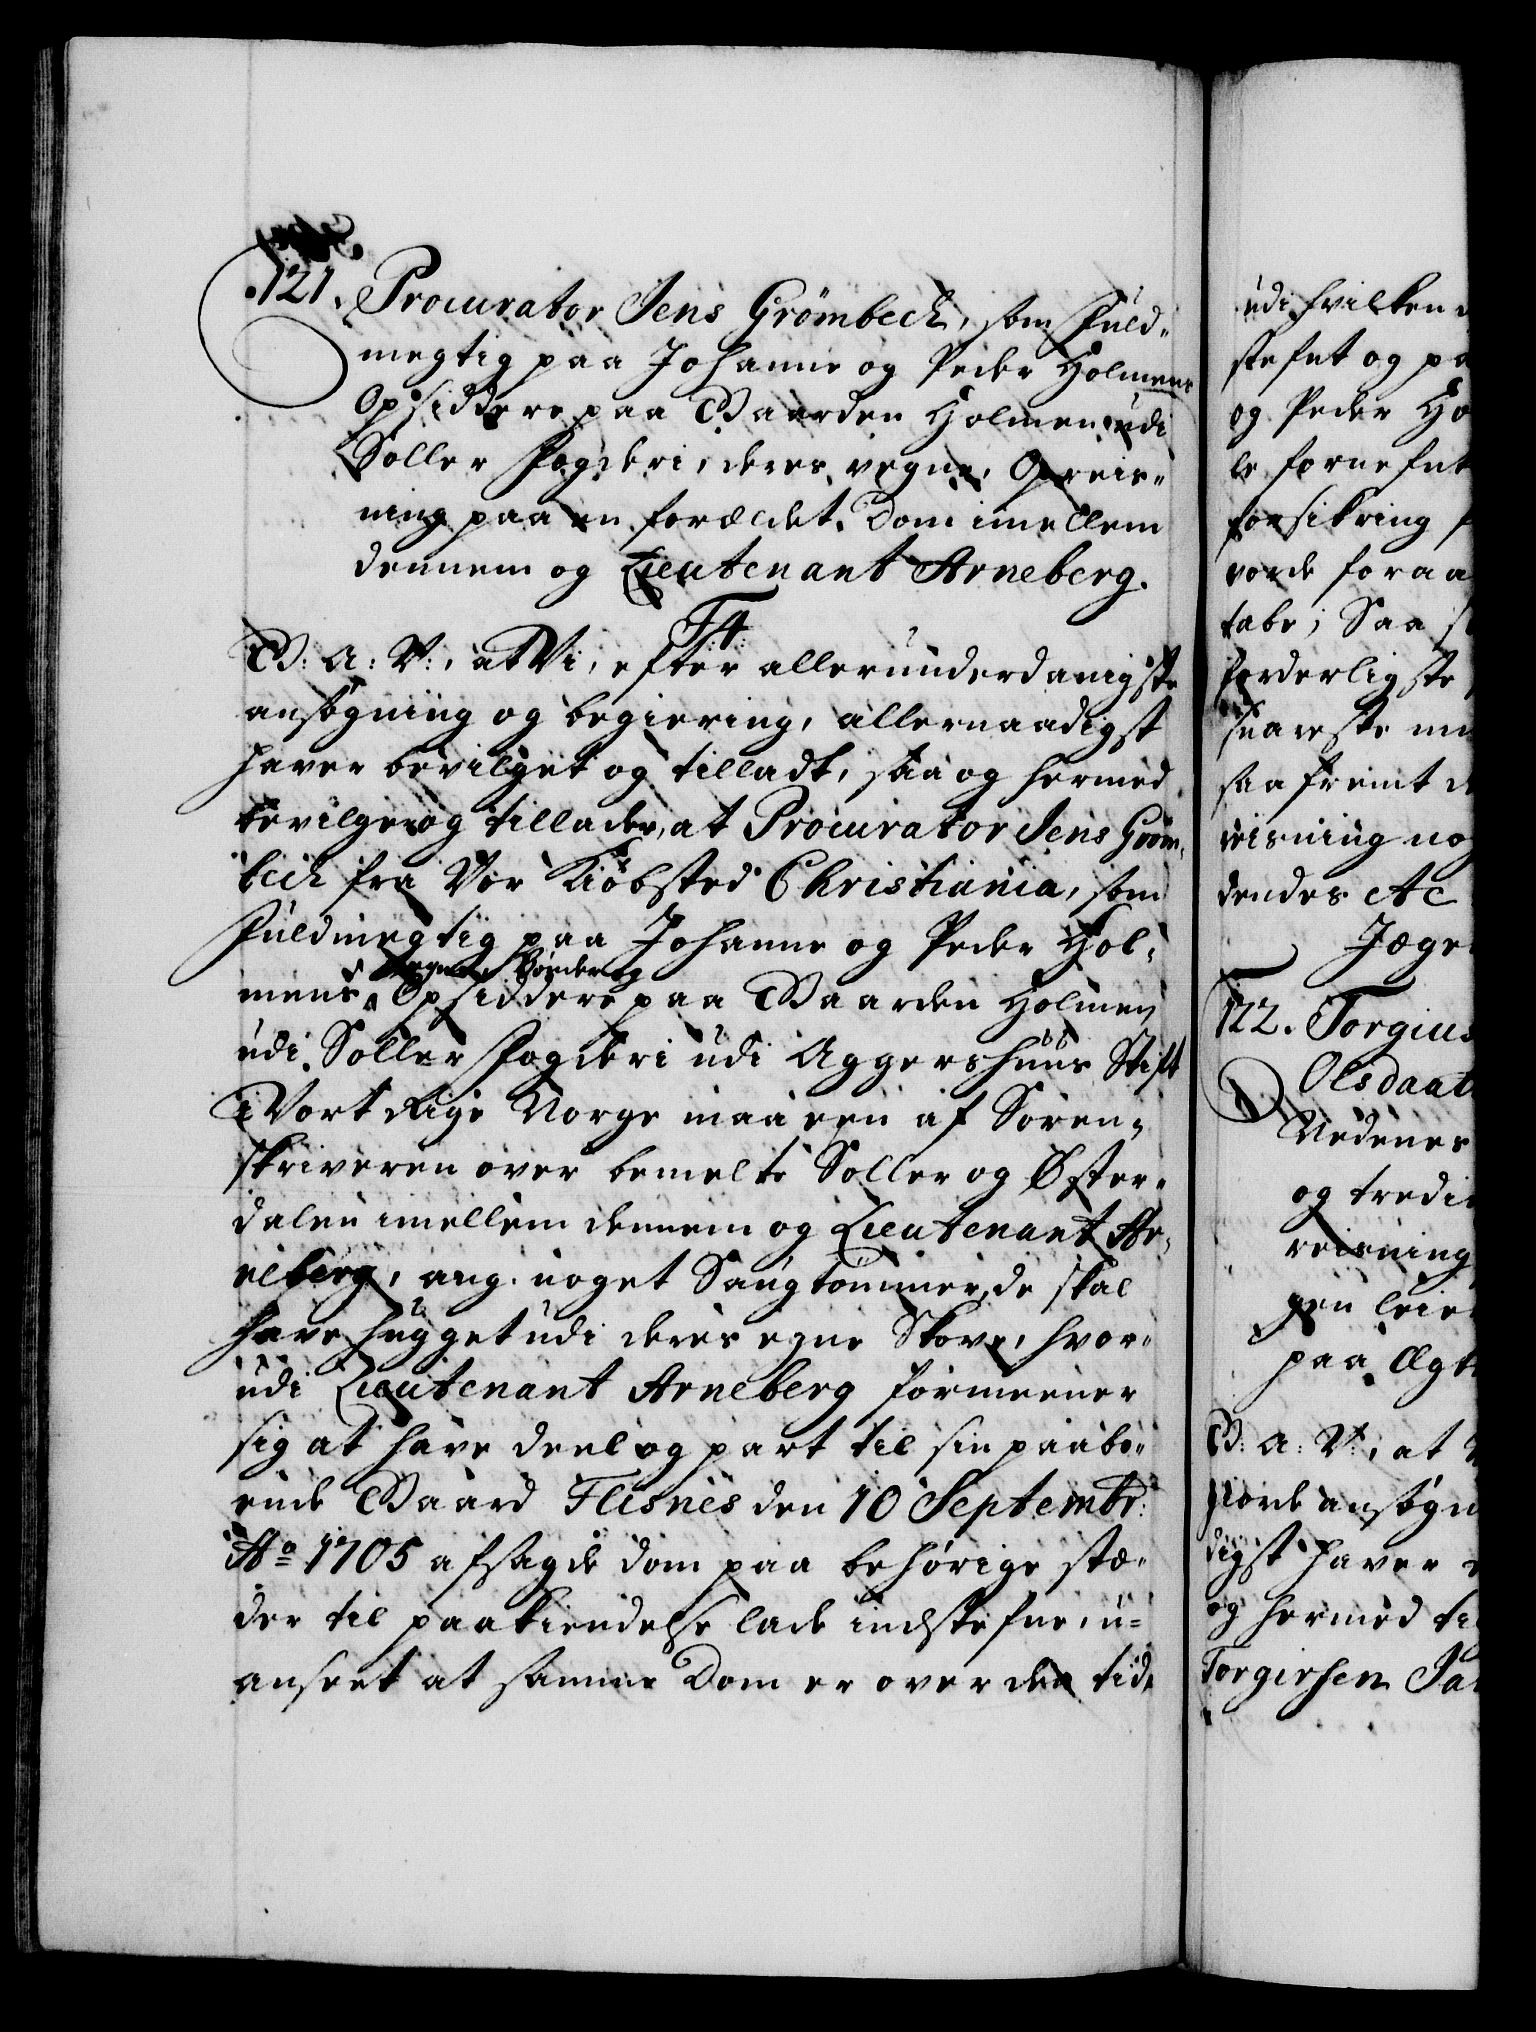 121. Procurator Jens Grömbech, som Fuld-
megtig paa Johanne og Peder Holmens
Opsiddere paa Gaarden Holmen udi
Soller Fogderi, deres vegne, Opreis-
ning paa en forældet Dom imellem
dennem og Lieutenant Arneberg.
F4.
G: A: V:, at Vi, efter allerunderdanigste
ansögning og begiering, allernaadigst
haver bevilget og tilladt, saa og hermed
bevilger og tillader, at Procurator Jens Gröm-
bech fra Vor Kiöbsted Christiania, som
Fuldmegtig paa Johanne og Peder Hol-
vegne, Bönder og
mens Opsiddere paa Gaarden Holmen
udi Soller Fogderi udi Aggershuus Stift
i Vort Rige Norge maa een af Soren-
skriveren over bemelte Soller og Öster-
dalen imellem dennem og Lieutenant Ar-
neberg, ang. noget Saugtömmer, de skal
have hugget udi deres egne Skove, hvor-
udi Lieutenant Arneberg formeener
sig at have deel og part til sin paaboe-
ende Gaard Flisnes den 10 Septembr:
Ao 1705 afsagde dom paa behörige stæ-
der til paakiendelse lade indstefne, u-
anseet at samme Dom er over den tid,
udi hvilken
stefnt og pa
og Peder Ho
le fornefnt
forsikring
vorde foraa
tabe; Saa
forderligste
snareste
saa fremt
reisning
dendes Ac
Jæge
122. Torgius
Olsdaat
Nedenes
og tredi
reisning
gen leie
paa Ægt
G: A: V:, at
giorde ansögn
digst haver
og hermed ti
Torgiersen Ja